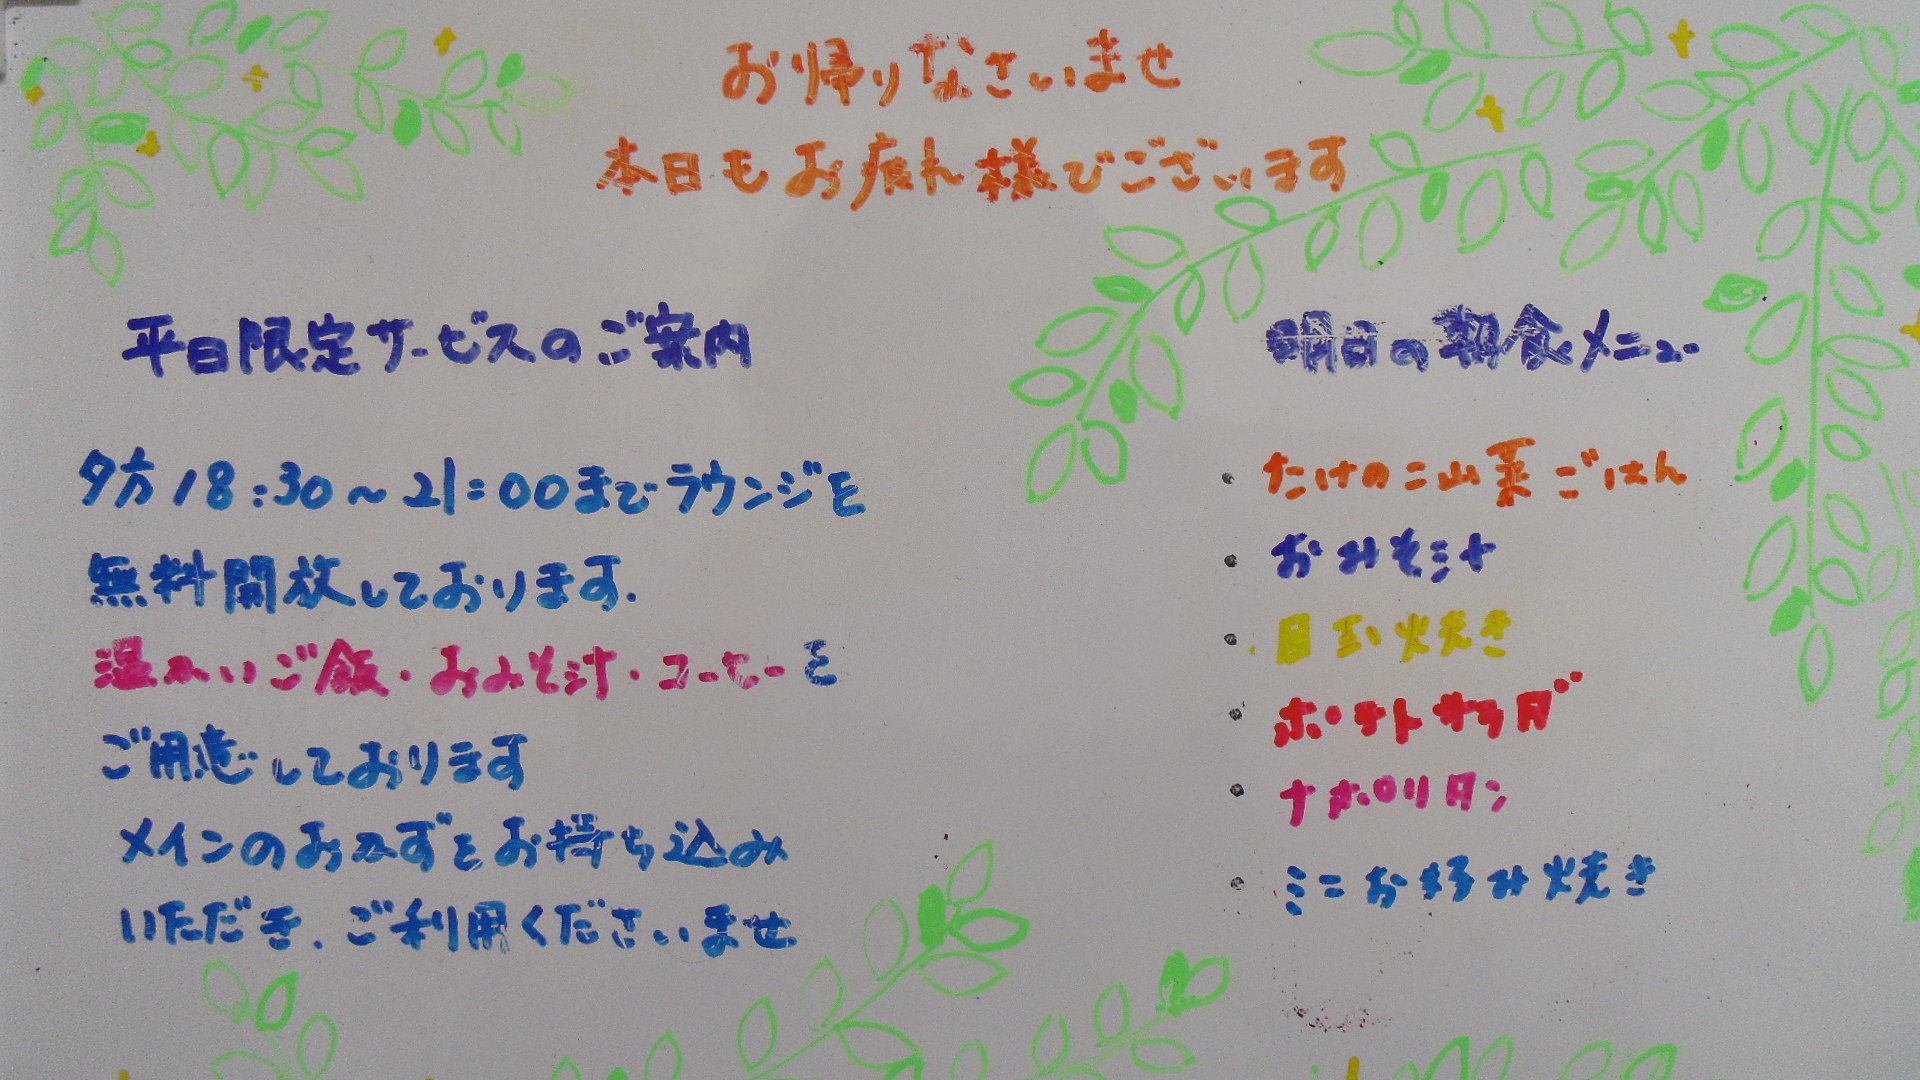 お帰りなさいませ
本日もお疲れ様でございます
平日限定サービスのご案内
夕方18:30～21:00までラウンジを
無料開放しております.
温かいご飯・おみそ汁・コーヒーを
ご用意しております
メインのおかずをお持ち込み
いただき、ご利用くださいませ
明日の朝食メニュー
・たけのこ山菜ごはん
・おみそ汁
・目玉焼き
・ポテトサラダ
・ナポリタン
・ミニお好み焼き